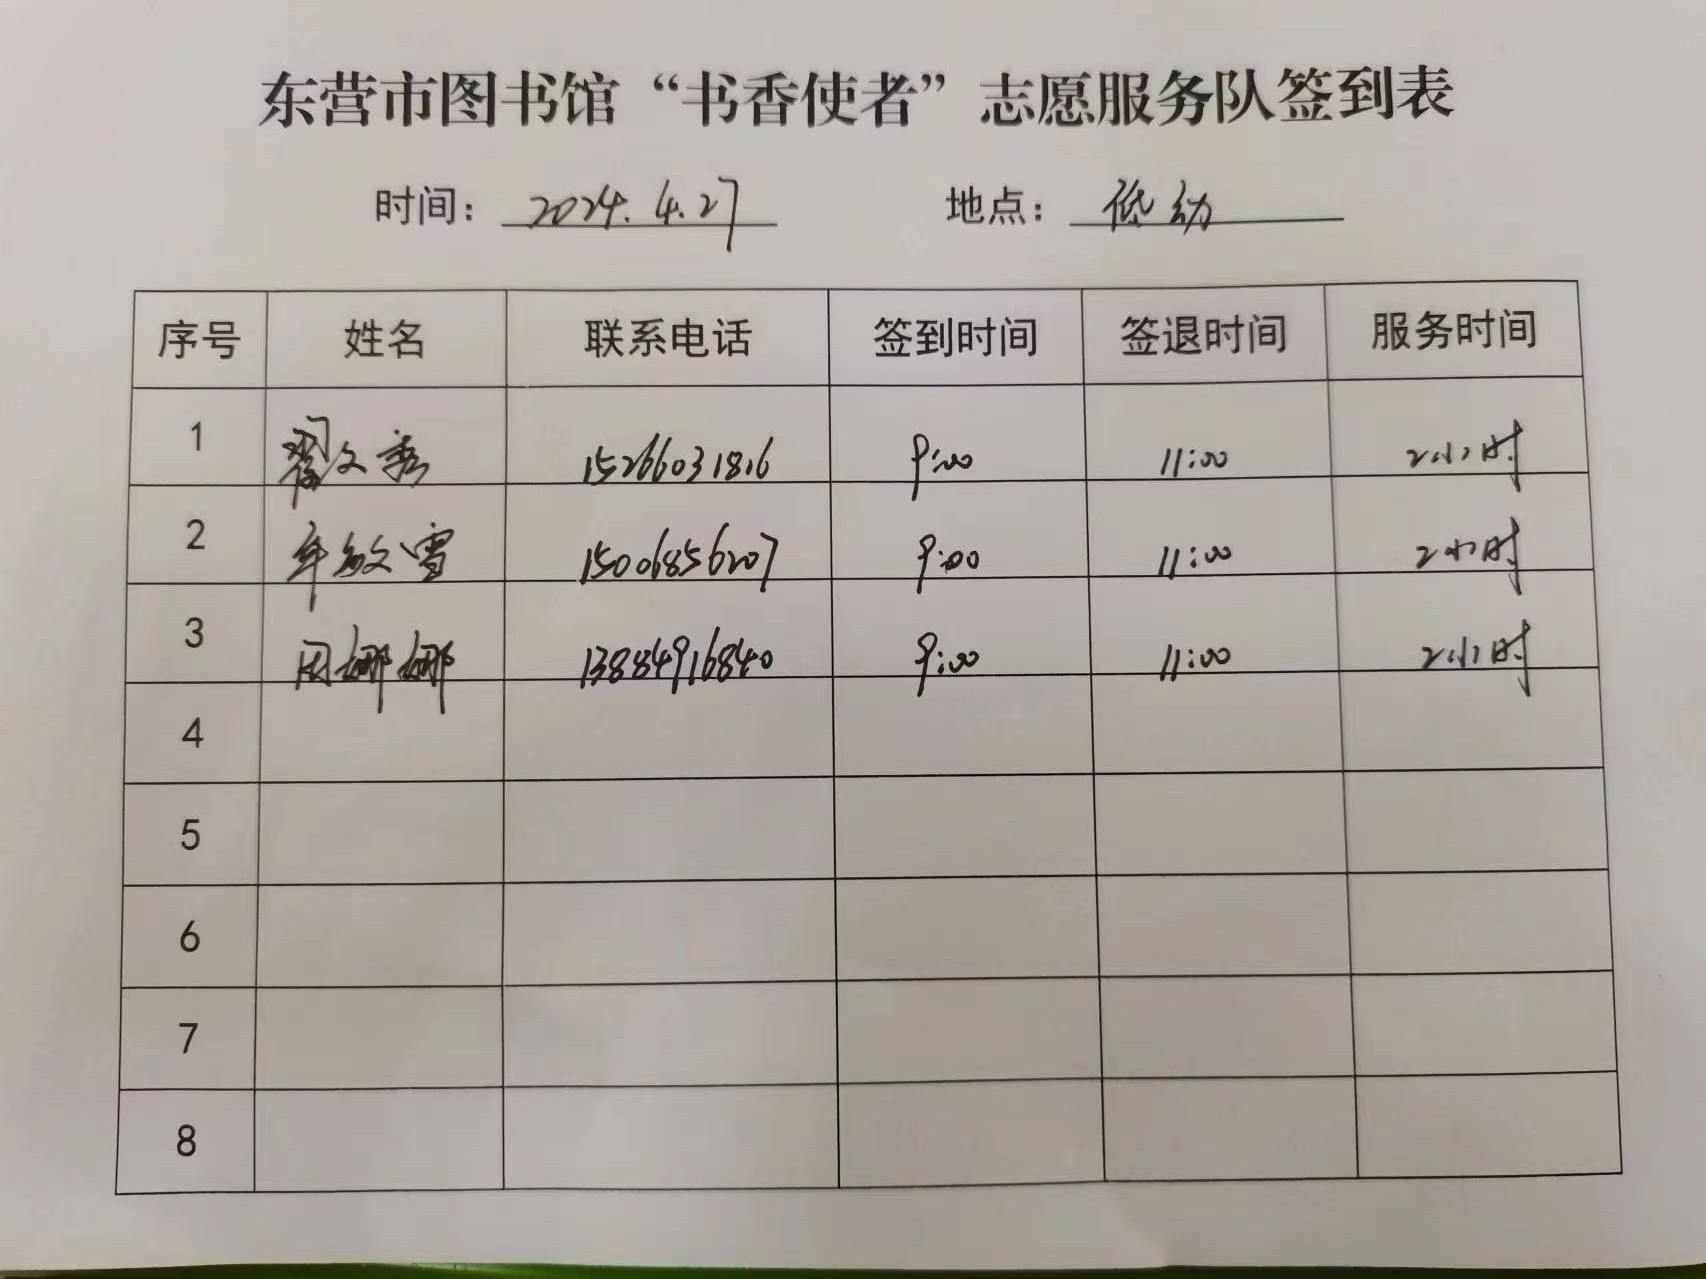 东营市图书馆“书香使者”志愿服务队签到表
时间：2024.4.27 地点：低幼
序号 姓名 联系电话 签到时间 签退时间 服务时间
1 翟文秀 15266031816 9:00 11:00 2小时
2 牟敏雪 15006856207 9:00 11:00 2小时
3 周娜娜 13884916840 9:00 11:00 2小时
4
5
6
7
8